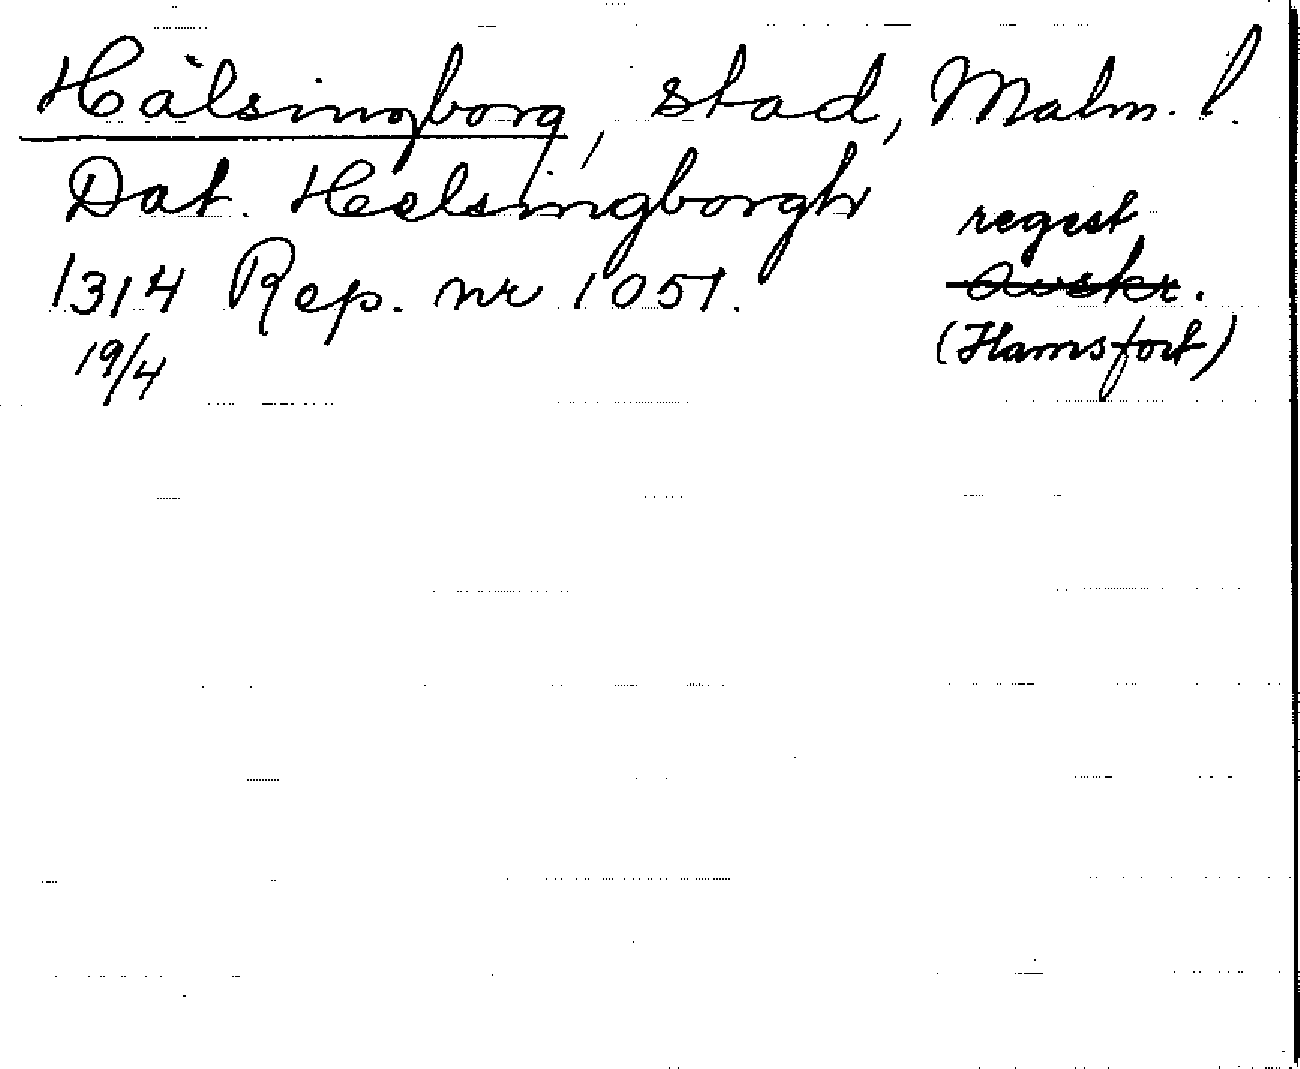 Hälsingborg, stad, Malm. l.
Dat. Helsingborgh
regest
1314 Rep. nr 1051. Avskr.
19/4 (Hamsfort)